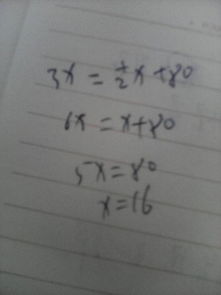 3x = 1/2x + 80
6x = x + 80
5x = 80
x = 16